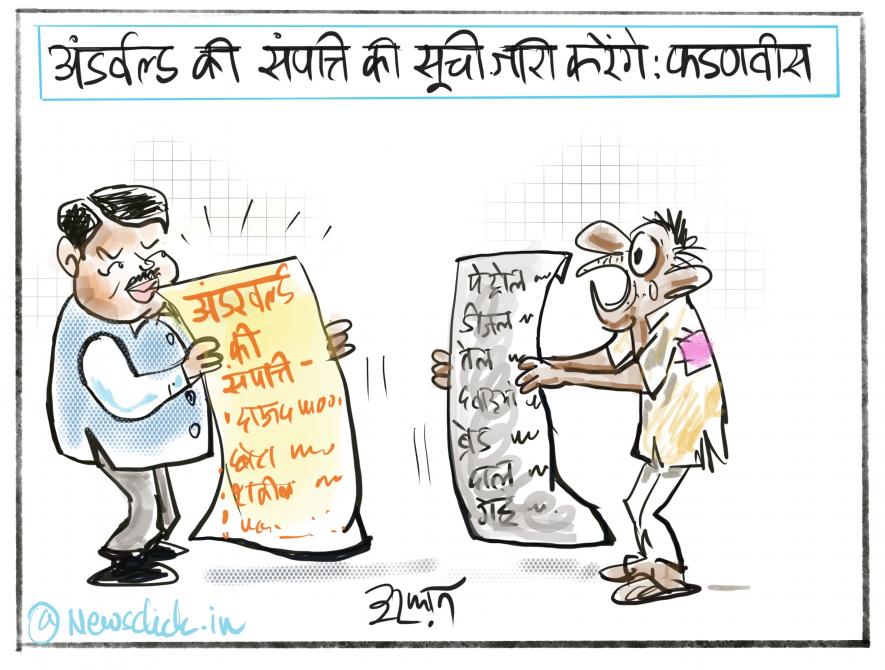 अंडर्वल्ड की संपत्ति की सूची जारी करेंगे: फडणवीस
अंडरवर्ल्ड
की
संपत्ति -
दाऊद
छोटा
पेट्रोल
डीजल
तेल
दवाइयां
दाल
गेहूं
इरफ़ान
@Newsclick.in